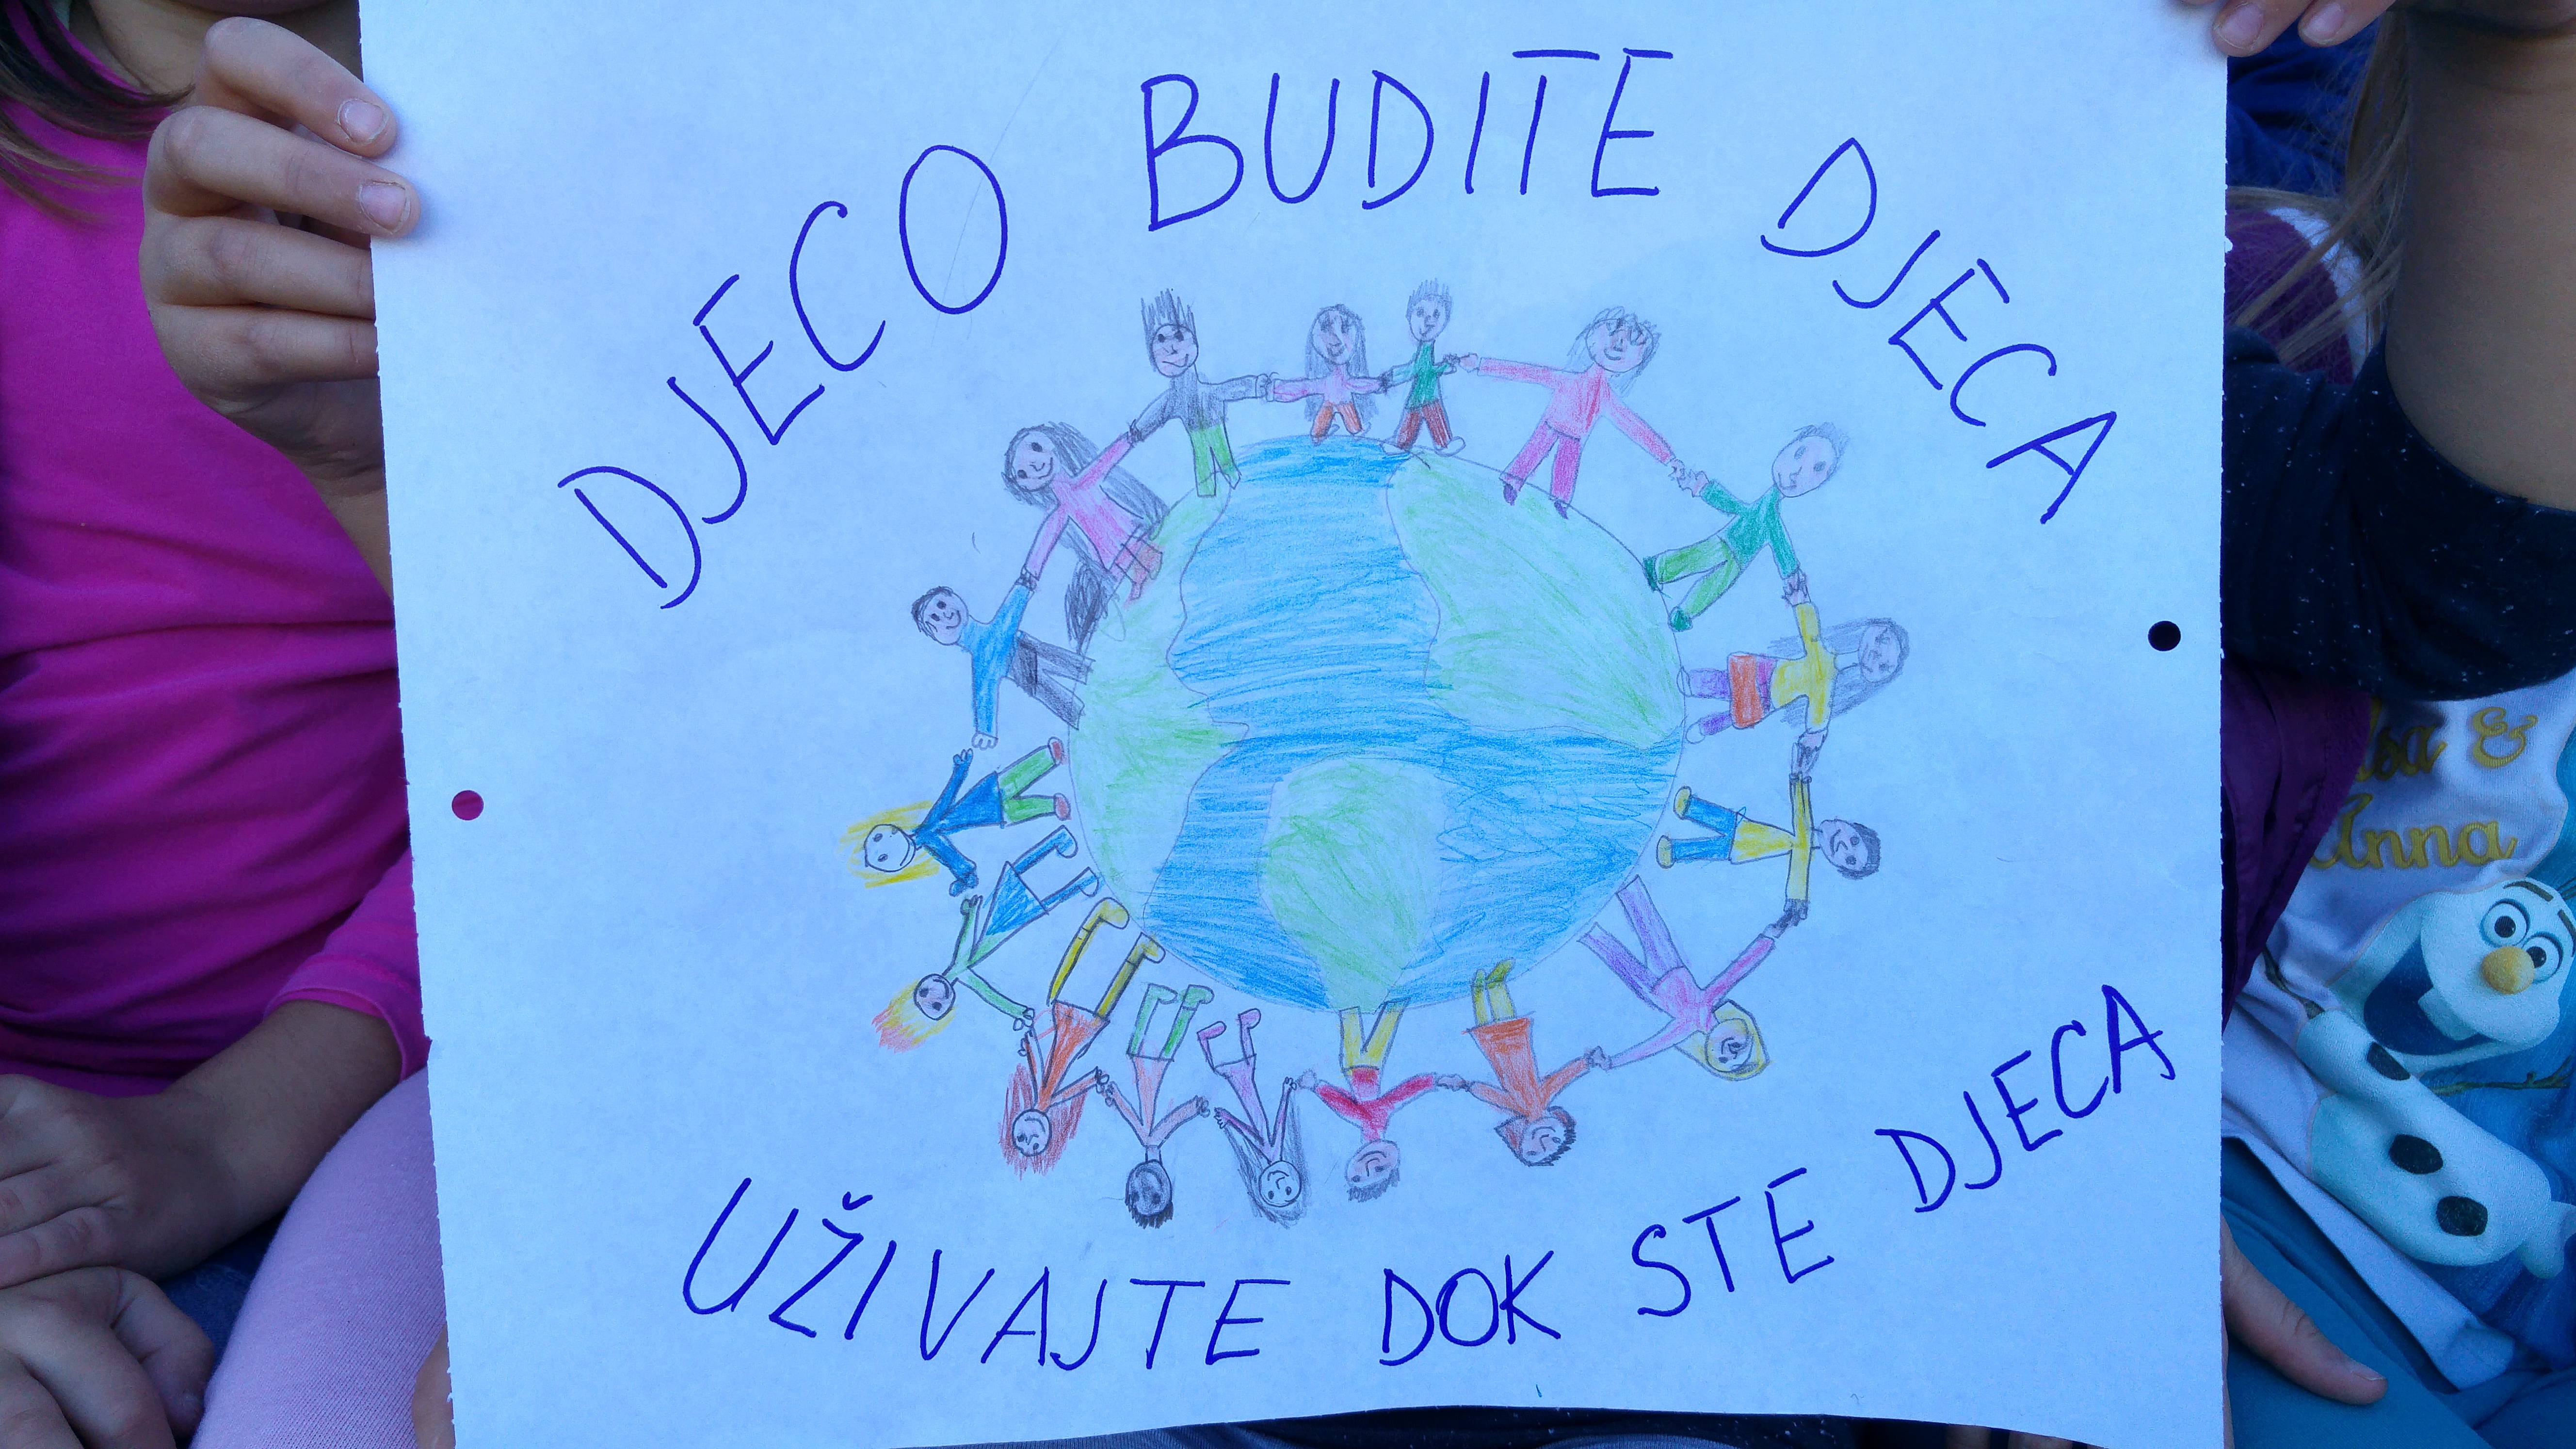 DJECO BUDITE DJECA
UŽIVAJTE DOK STE DJECA
&
Anna